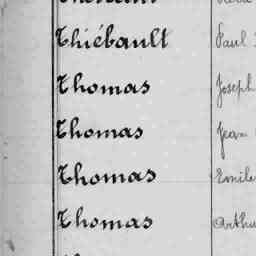 Thiébault Paul
Thomas Joseph
Thomas Jean
Thomas Emile
Thomas Arthu